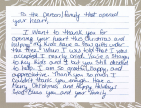 To the Person/family that opened
your heart,
I want to thank you for
opening your heart this Christmas and
helping my kids have a
the tree! When I was told that I was
accepted, I nearly cried. You're a
my kids and I
me. I am so grateful, happy, and
appreciative. Thank you so much I
couldn't thank you enough. Have a
Merry Christmas and Happy Holiday!
God Bless you and your family